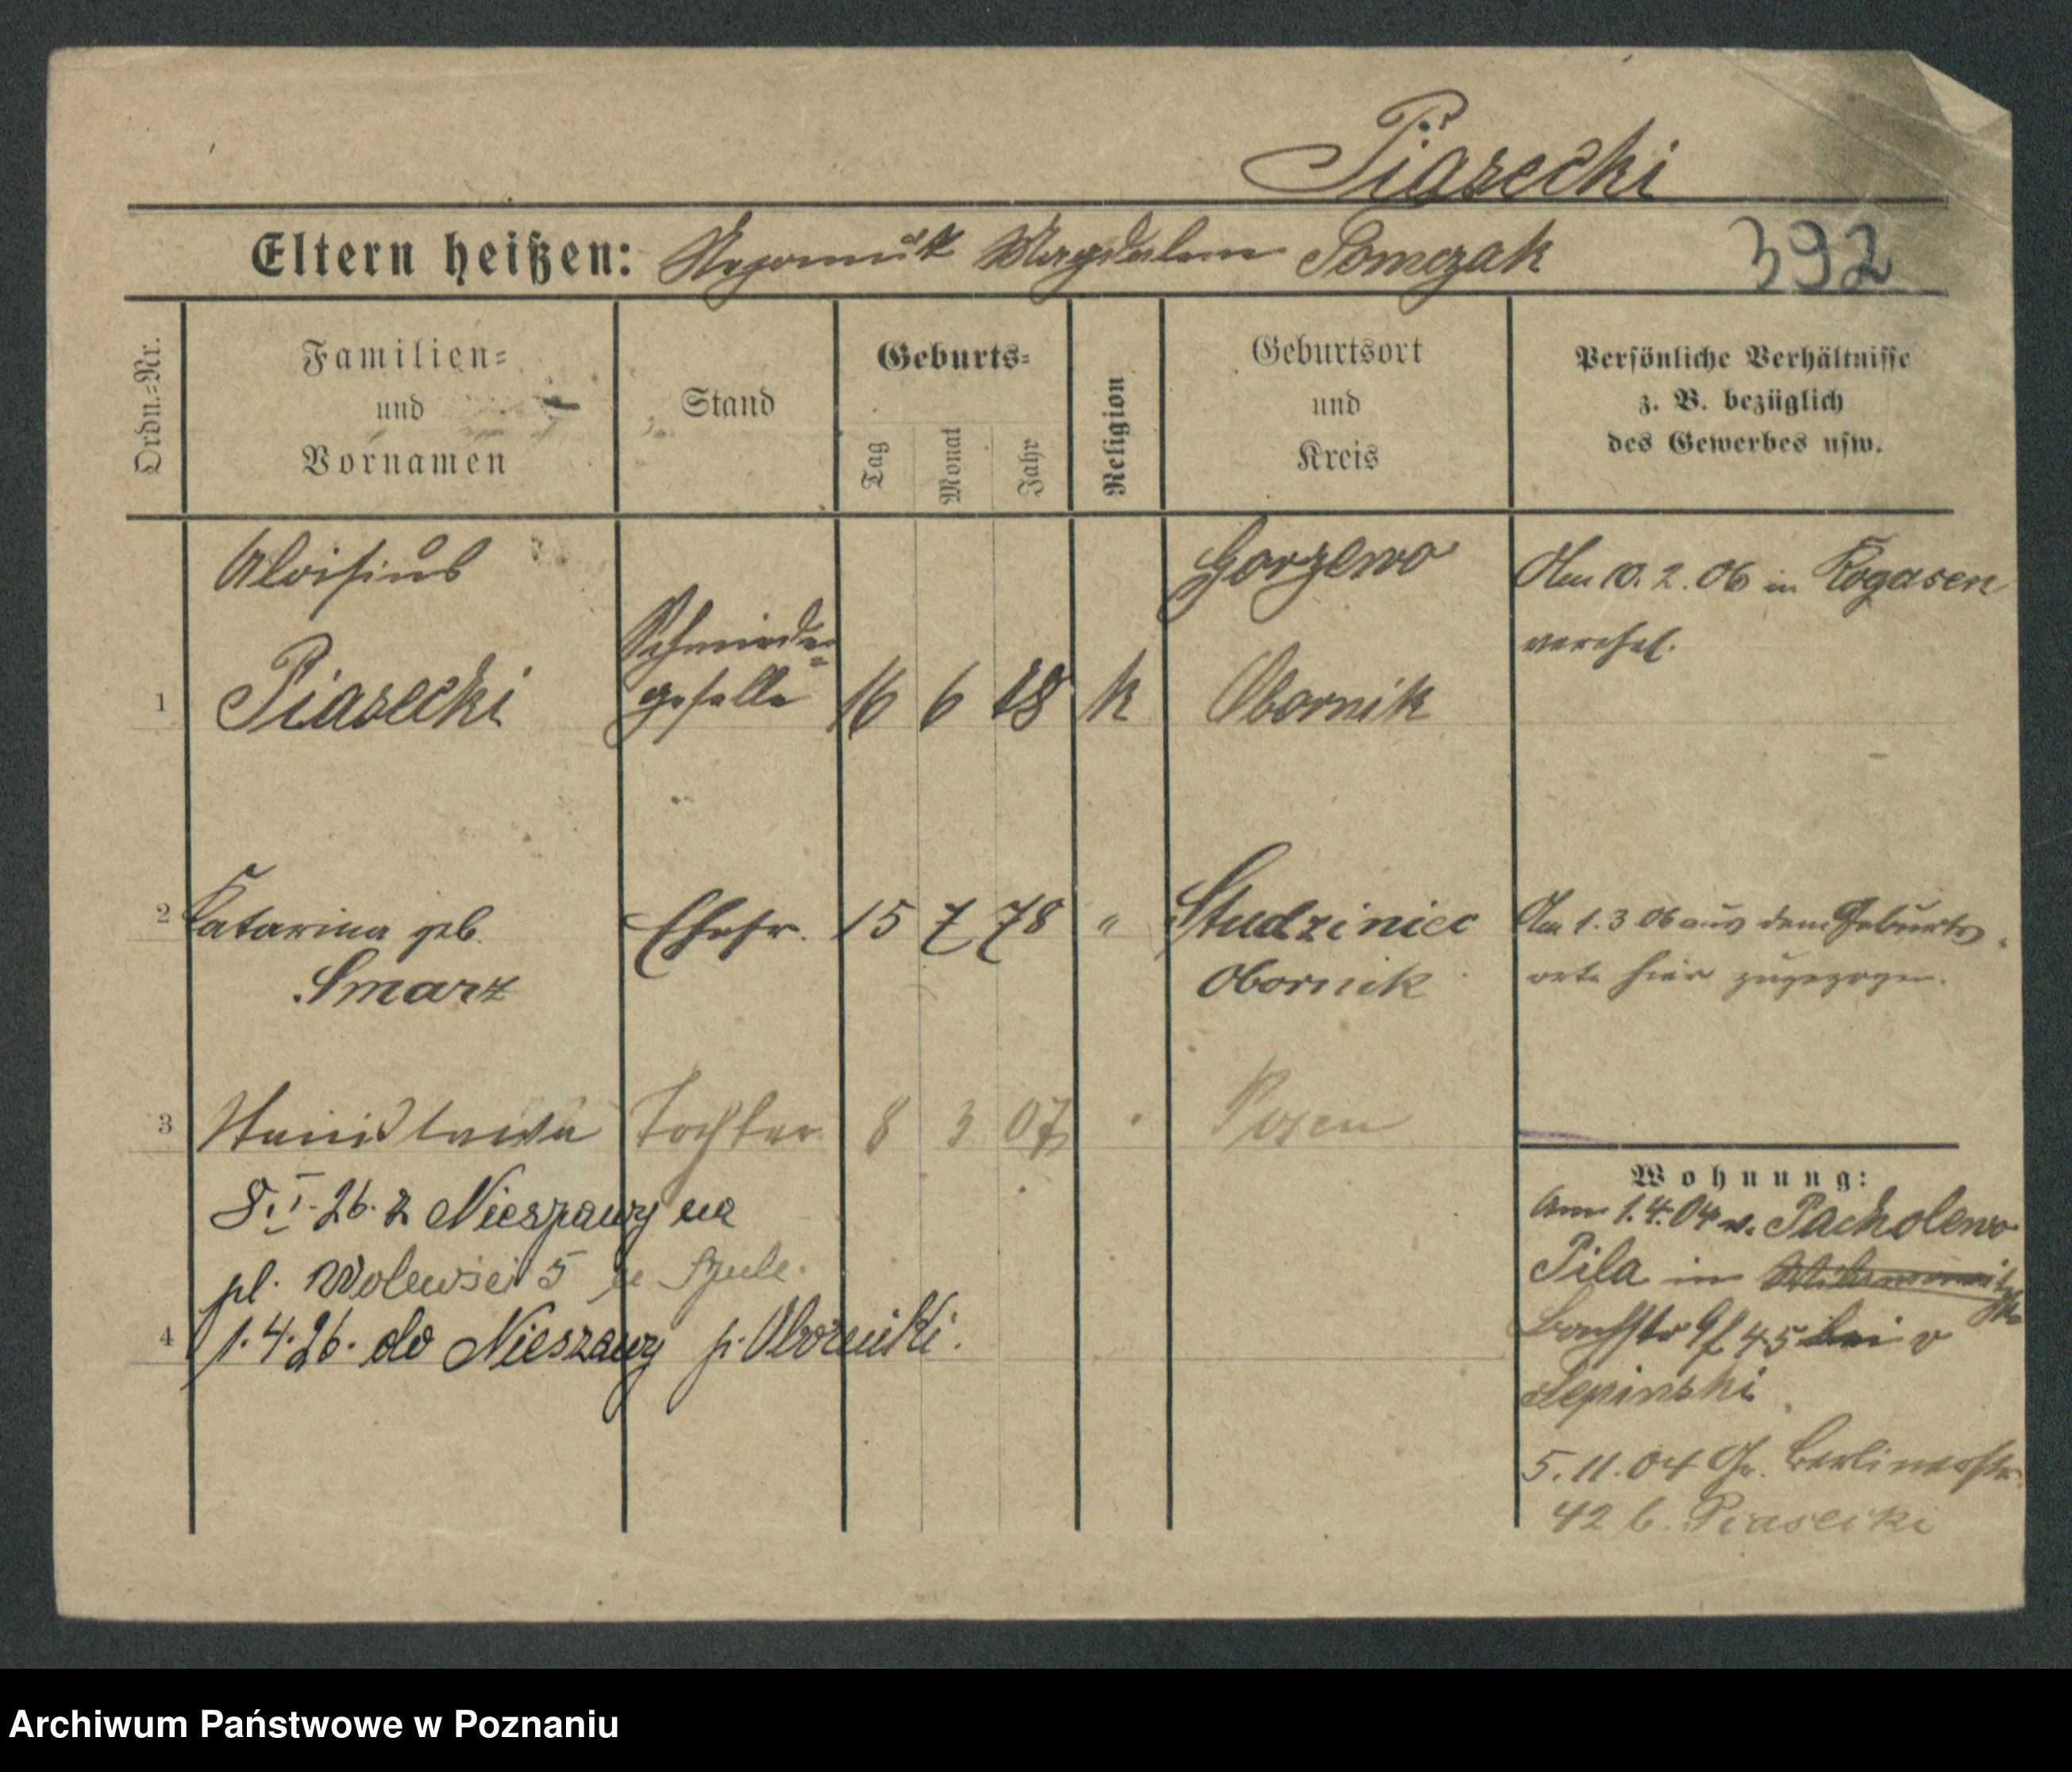 Piasecki
Eltern heißen: Nepomuk Magdalena Tomczak 392
Ordn.-Nr.
Familien-
und
Vornamen
Stand
Geburts-
Tag
Monat
Jahr
Religion
Geburtsort
und
Kreis
Persönliche Verhältnisse
z. B. bezüglich
des Gewerbes usw.
Aloisius
Schmiede-
Gorzewo
Am 10. 2. 06 in Rogasen
verehel.
1 Piasecki geselle 16 6 78 k Obornik
2 Katarina geb. Ehefr. 15 7 78 " Studziniec
Smarz Obornik
Am 1. 3 06 aus dem Geburts-
orte hier zugezogen.
3 Stanislawa Tochter 8 3 07 Posen
8. I. 26. z Nieszawy na
pl. 5
4 1. 4. 26. do Nieszawy p. Oborniki.
Wohnung:
Am 1. 4. 04 v. Pacholewo
Pila in
45 bei v
Sepinski
5. 11. 04 Gr. Berlinerstr.
42 b. Piasecki
Archiwum Państwowe w Poznaniu